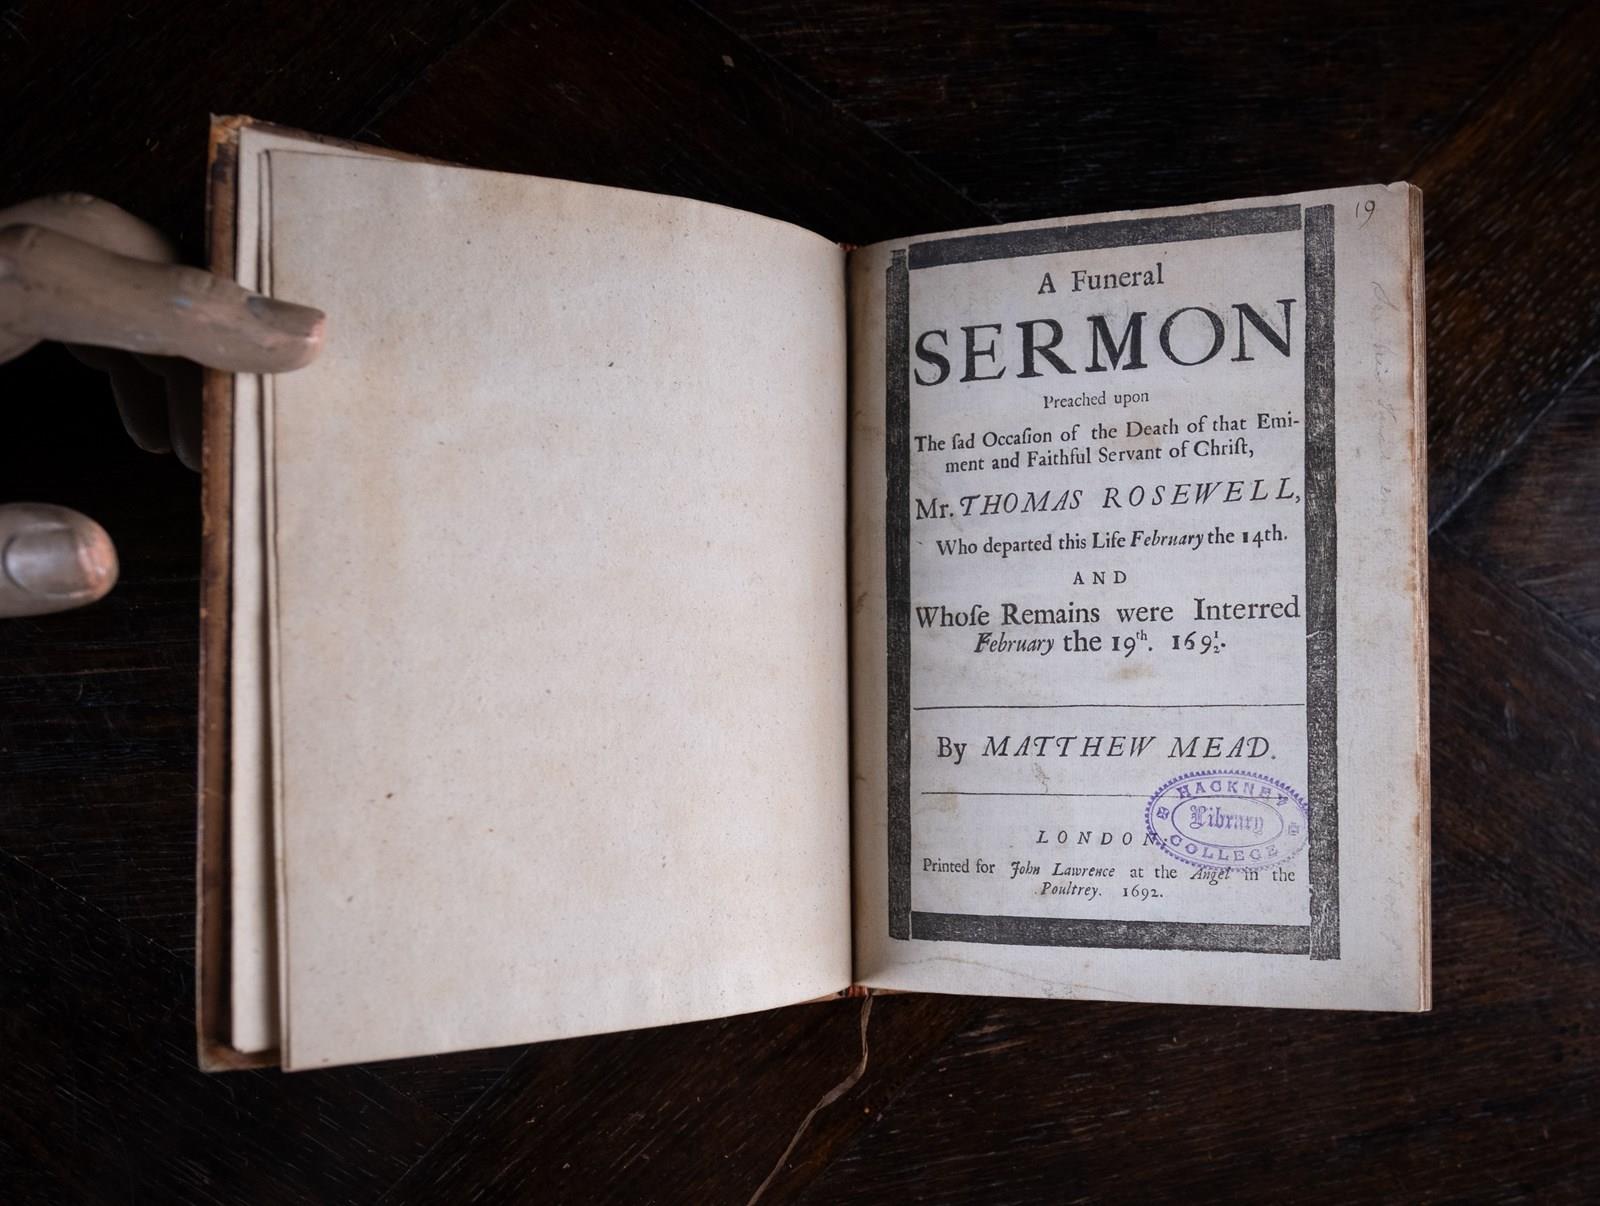 19
A Funeral
SERMON
Preached upon
The ſad Occaſion of the Death of that Emi-
ment and Faithful Servant of Chriſt,
Mr. THOMAS ROSEWELL,
Who departed this Life February the 14th.
AND
Whoſe Remains were Interred
February the 19th. 169½.
By MATTHEW MEAD.
HACKNEY
Library
COLLEGE
LONDON:
Printed for John Lawrence at the Angel in the
Poultrey. 1692.